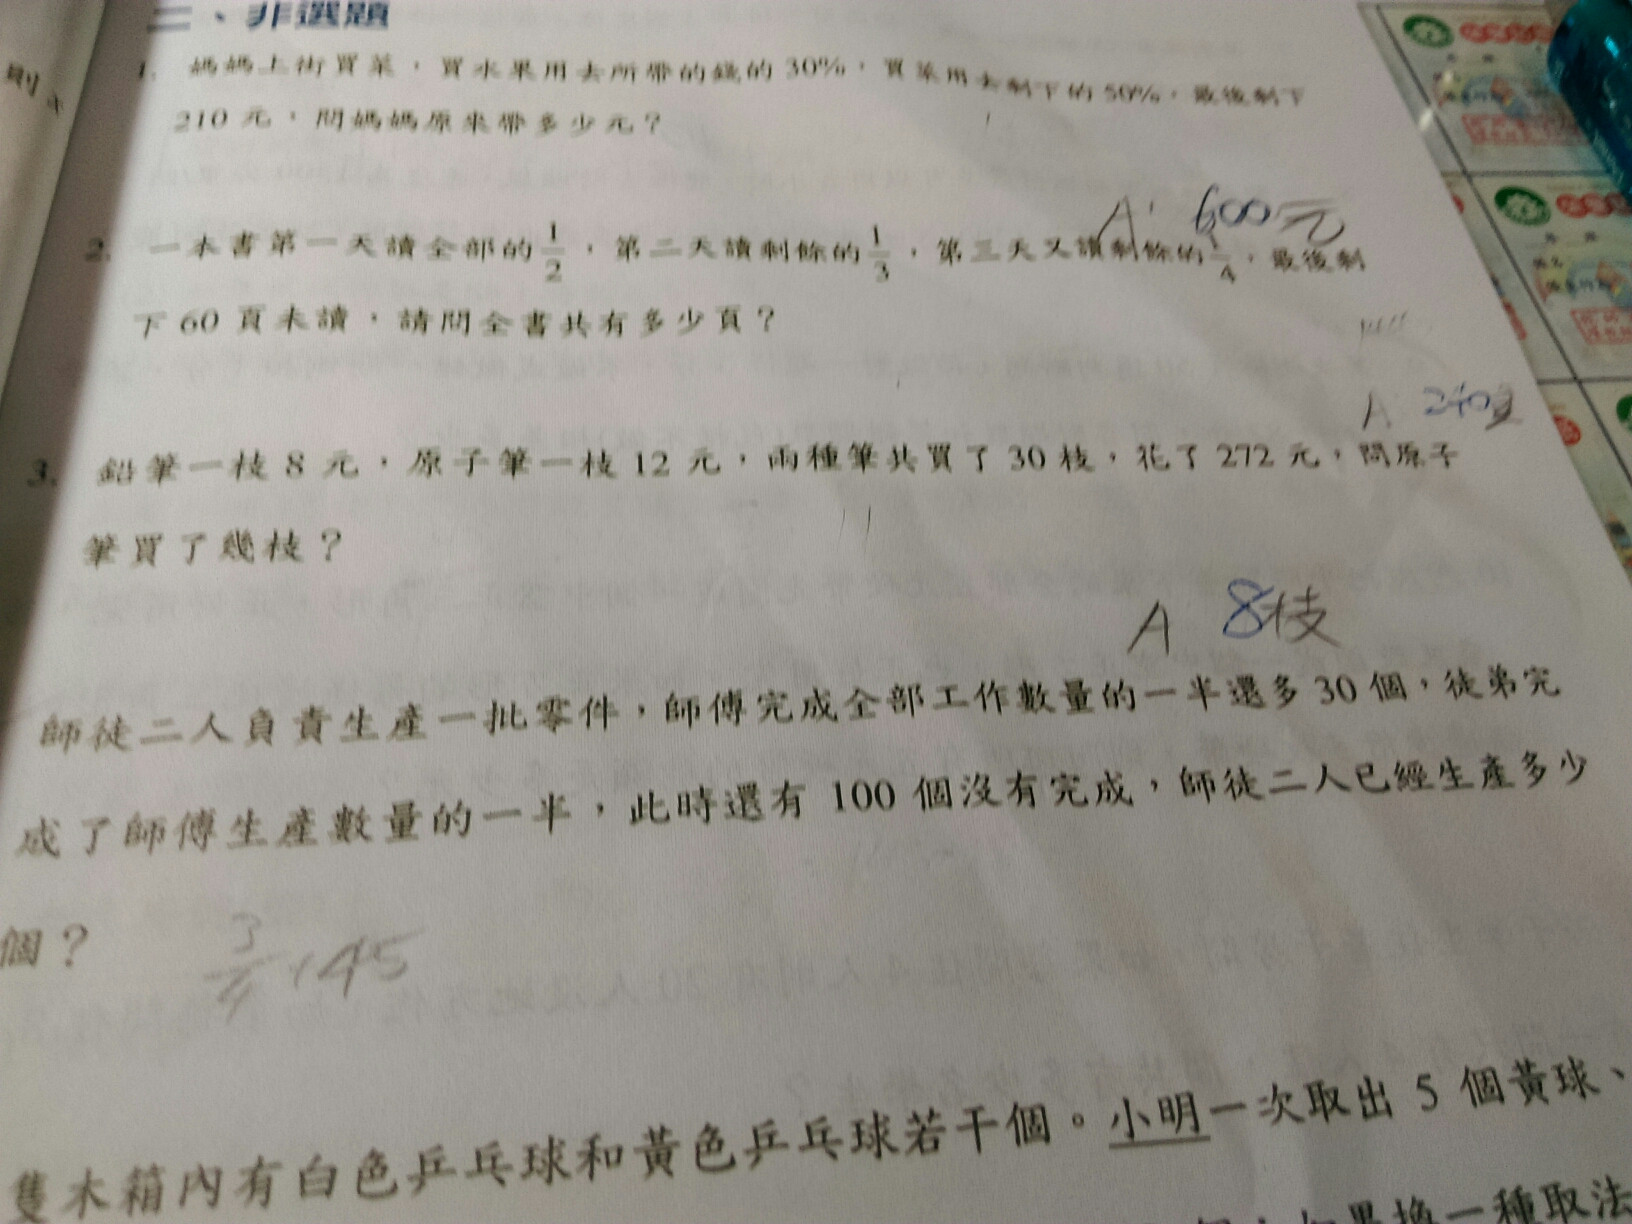 二、非選題
則 x
1. 媽媽上街買菜，買水果用去所帶的錢的 30%，買菜用去剩下的 50%，最後剩下
210 元，問媽媽原來帶多少元？
A 600元
2. 一本書第一天讀全部的 1/2，第二天讀剩餘的 1/3，第三天又讀剩餘的 1/4，最後剩
下 60 頁未讀，請問全書共有多少頁？
A 240頁
3. 鉛筆一枝 8 元，原子筆一枝 12 元，兩種筆共買了 30 枝，花了 272 元，問原子
筆買了幾枝？
A 8枝
師徒二人負責生產一批零件，師傅完成全部工作數量的一半還多 30 個，徒弟完
成了師傅生產數量的一半，此時還有 100 個沒有完成，師徒二人已經生產多少
個？
3/4 + 45
隻木箱內有白色乒乓球和黃色乒乓球若干個。小明一次取出 5 個黃球、
如果換一種取法